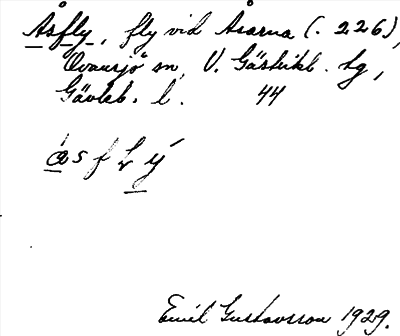 Åsfly, fly vid Åsarna (. 226),
Ovansjö sn, V. Gästrikl. tg,
Gävleb. l. 44
Emil Gustavsson 1929.